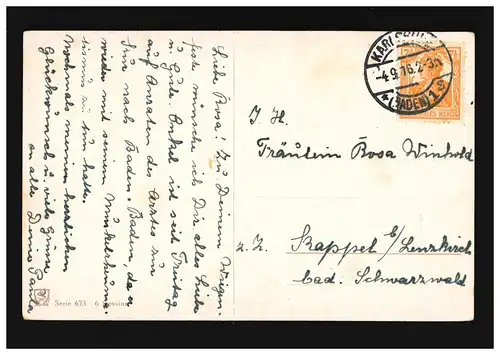 Liebe Rosa! Zu Deinem Wiegen-
fest wünsche ich Dir alles Liebe
u. Gute. Onkel ist seit Freitag
auf Anraten des Arztes zur
Kur nach Baden-Baden, da er
wieder mit seinem Muskelrheuma-
tismus zu tun hatte.
Nochmals meinen herzlichen
Glückwunsch u. viele Grüsse
an alle Deine Paula
Serie 673
KARLSRUHE
-4.9.16.2-3N
*(BADEN)1
I. H.
Fräulein Rosa Winhold
z. Z. Kappel b/Lenzkirch
bad. Schwarzwald